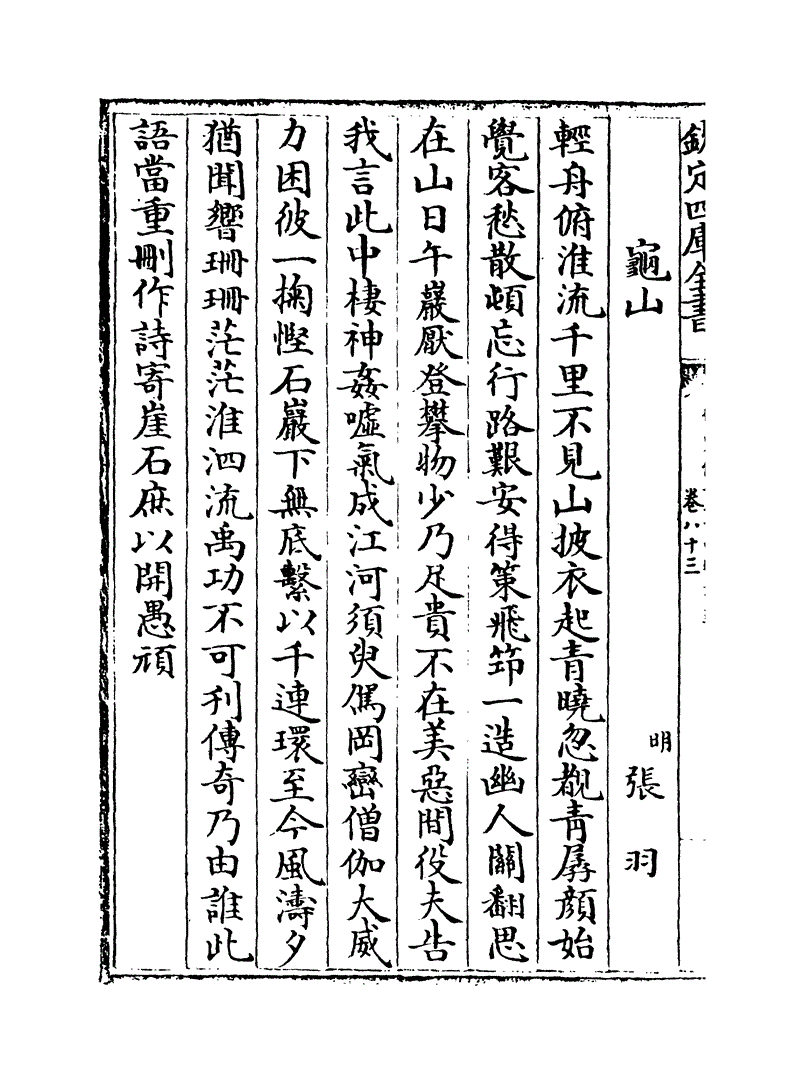 欽定四庫全書
卷八十三
龜山
明 張羽
輕舟俯淮流千里不見山披衣起青曉忽覩青孱顔始
覺客愁散頓忘行路艱安得策飛筇一造幽人關翻思
在山日午巖厭登攀物少乃足貴不在美惡間役夫告
我言此中棲神姦噓氣成江河須臾儁岡巒僧伽大威
力困彼一掬慳石巖下無底繫以千連環至今風濤夕
猶聞響珊珊茫茫淮泗流禹功不可利傳奇乃由誰此
語當重刪作詩寄崖石庶以開愚頑